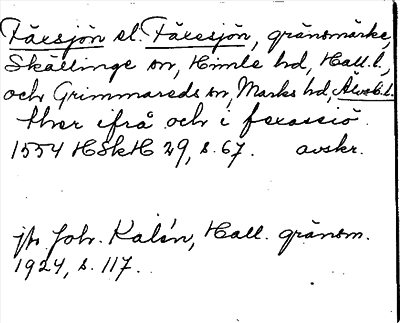 Färsjön el. Färesjön, gränsmärke,
Skällinge sn, Himle hd, Hall. l.,
och Grimmareds sn, Marks hd, Älvsb. l.
ther ifrå och i fexassiö
1554 HSkH 29, s. 67. avskr.
jfr Joh. Kalén, Hall. gränsm.
1924, s. 117.